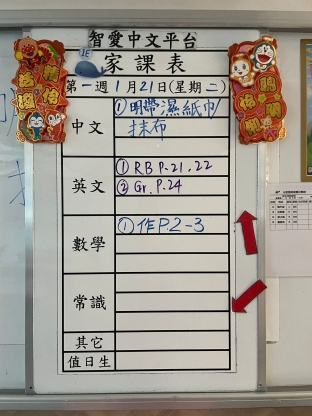 智愛中文平台
1E
家課表
第一週 1月21日(星期二)
中文 ①明帶濕紙巾/
抹布
英文 ①RB P.21,22
②Gr. P.24
數學 ①作P.2-3
常識
其它
值日生